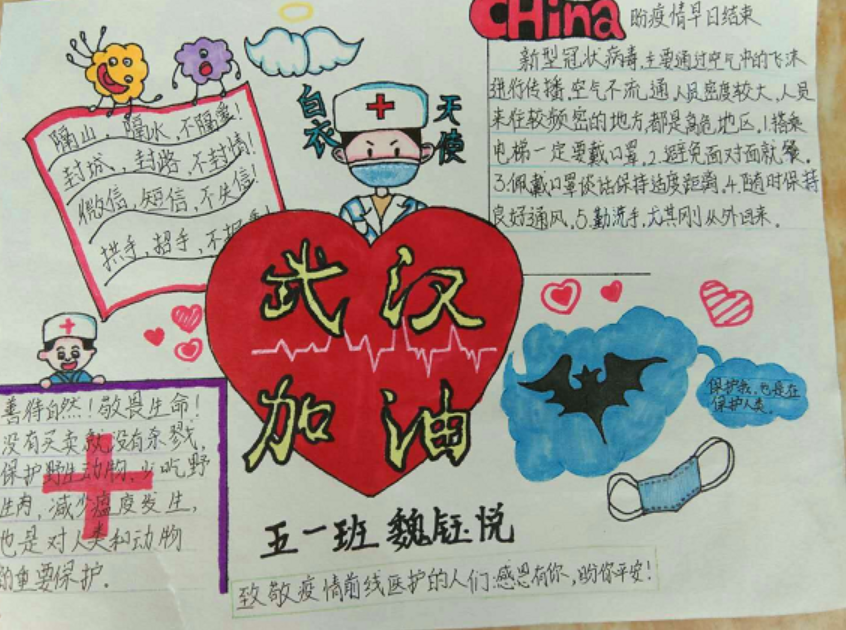 CHina 盼疫情早日结束
新型冠状病毒,主要通过空气中的飞沫
进行传播,空气不流通,人员密度较大,人员
来往较频密的地方,都是高危地区,1.搭乘
电梯一定要戴口罩,2.避免面对面就餐.
3.佩戴口罩谈话保持适度距离,4.随时保持
良好通风.5.勤洗手,尤其刚从外回来.
隔山,隔水,不隔爱!
封城,封路,不封情!
微信,短信,不失信!
拱手,招手,不
白衣
天使
武汉
加油
善待自然!敬畏生命!
没有买卖就没有杀戮,
保护野生动物,少吃野
生肉,减少瘟疫发生,
也是对人类和动物
的重要保护.
保护我,也是在
保护人类.
五一班 魏钰悦
致敬疫情前线医护的人们:感恩有你,盼你平安!